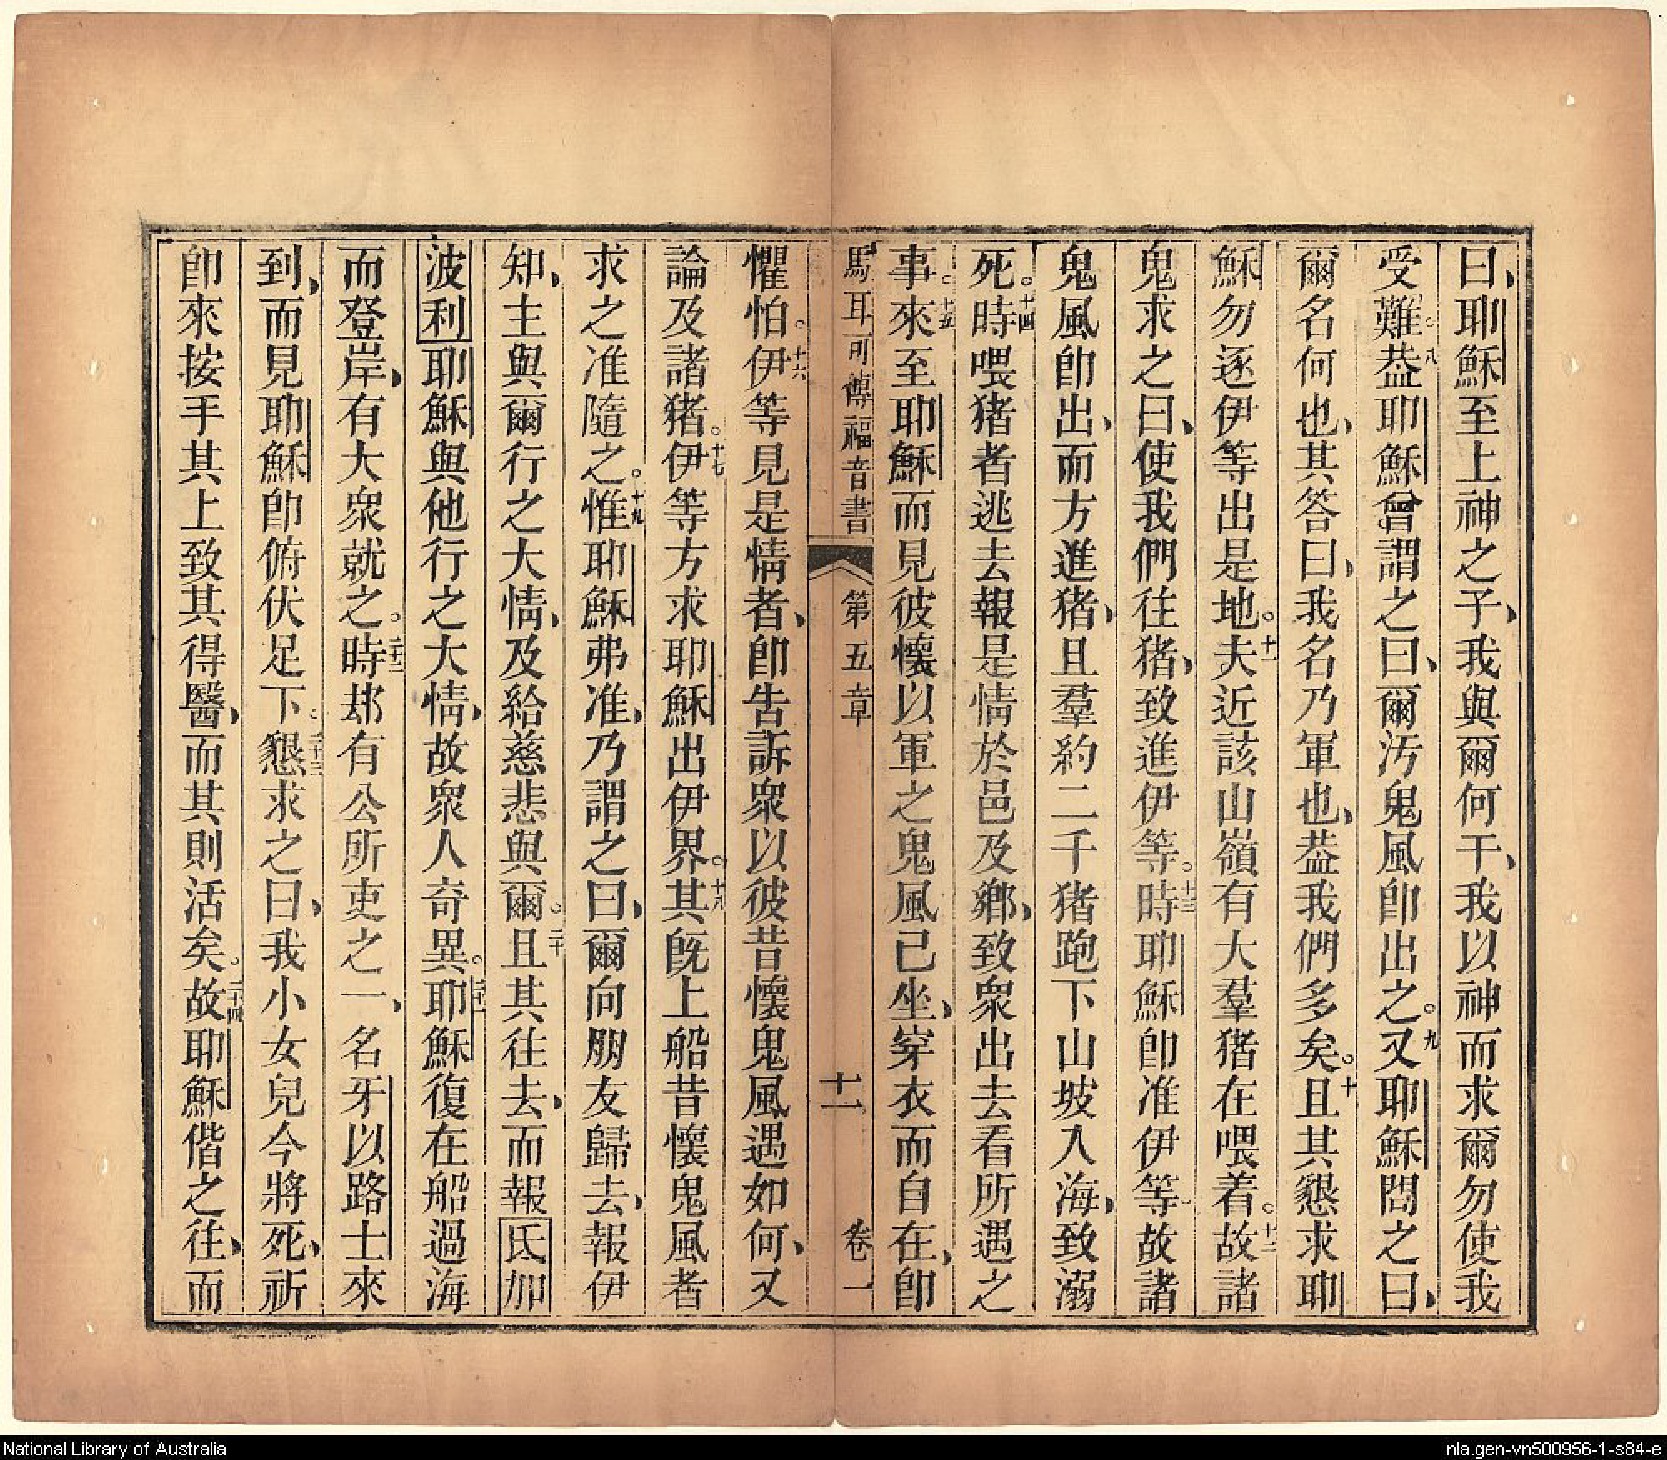 曰、耶穌至上神之子、我與爾何干、我以神而求爾勿使我
受難。八葢耶穌曾謂之曰、爾汚鬼風卽出之。九又耶穌問之曰、
爾名何也、其答曰、我名乃軍也、葢我們多矣。十且其懇求耶
穌勿逐伊等出是地。十一夫近該山嶺有大羣猪在喂着。十二故諸
鬼求之曰、使我們往猪、致進伊等。十三時耶穌卽准伊等、故諸
鬼風卽出、而方進猪、且羣約二千猪跑下山坡入海、致溺
死。十四時喂猪者逃去報是情於邑及鄉、致衆出去看所遇之
事。十五來至耶穌而見彼懷以軍之鬼風已坐、穿衣而自在、卽
馬耳可傳福音書 第五章 十一 卷一
懼怕。十六伊等見是情者、卽告訴衆以彼昔懷鬼風遇如何、又
論及諸猪。十七伊等方求耶穌出伊界。十八其旣上船昔懷鬼風者
求之准隨之。十九惟耶穌弗准、乃謂之曰、爾向朋友歸去、報伊
知、主與爾行之大情、及給慈悲與爾。二十且其往去、而報氐加
波利耶穌與他行之大情、故衆人奇異。二十一耶穌復在船過海
而登岸、有大衆就之。二十二時郄有公所吏之一、名牙以路士來
到、而見耶穌卽俯伏足下。二十三懇求之曰、我小女兒今將死、祈
卽來按手其上致其得醫、而其則活矣。二十四故耶穌偕之往、而
National Library of Australia
nla.gen-vn500956-1-s84-e